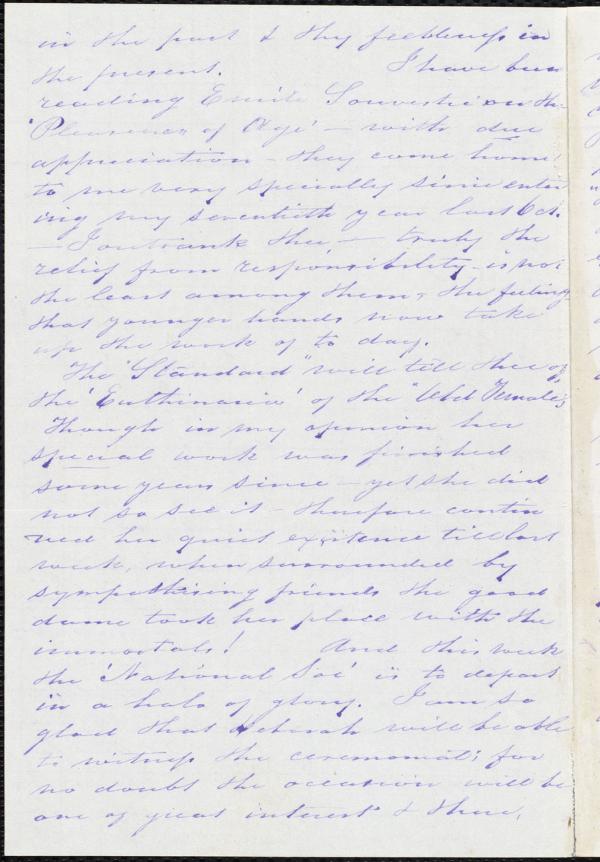 in the past & thy feebleness in
the present. I have been
reading Emile Souvestre on the
'Pleasures of Age' – with due
appreciation – they come home
to me very specially since enter
ing my seventieth year last Oct.
– I outrank thee – truly the
relief from responsibility – is not
the least among them, the feeling
that younger hands now take
up the work of to day.
The "Standard" will tell thee of
the 'Euthinasia' of the "Old Female"
Though in my opinion her
special work was finished
some years since – yet she did
not so see it – therefore contin
ued her quiet existence till last
week, when surrounded by
sympathising friends the good
dame took her place with the
immortals! And this week
the 'National Soc' is to depart
in a halo of glory. I am so
glad that Deborah will be able
to witness the ceremonial; for
no doubt the occasion will be
one of great interest & there,